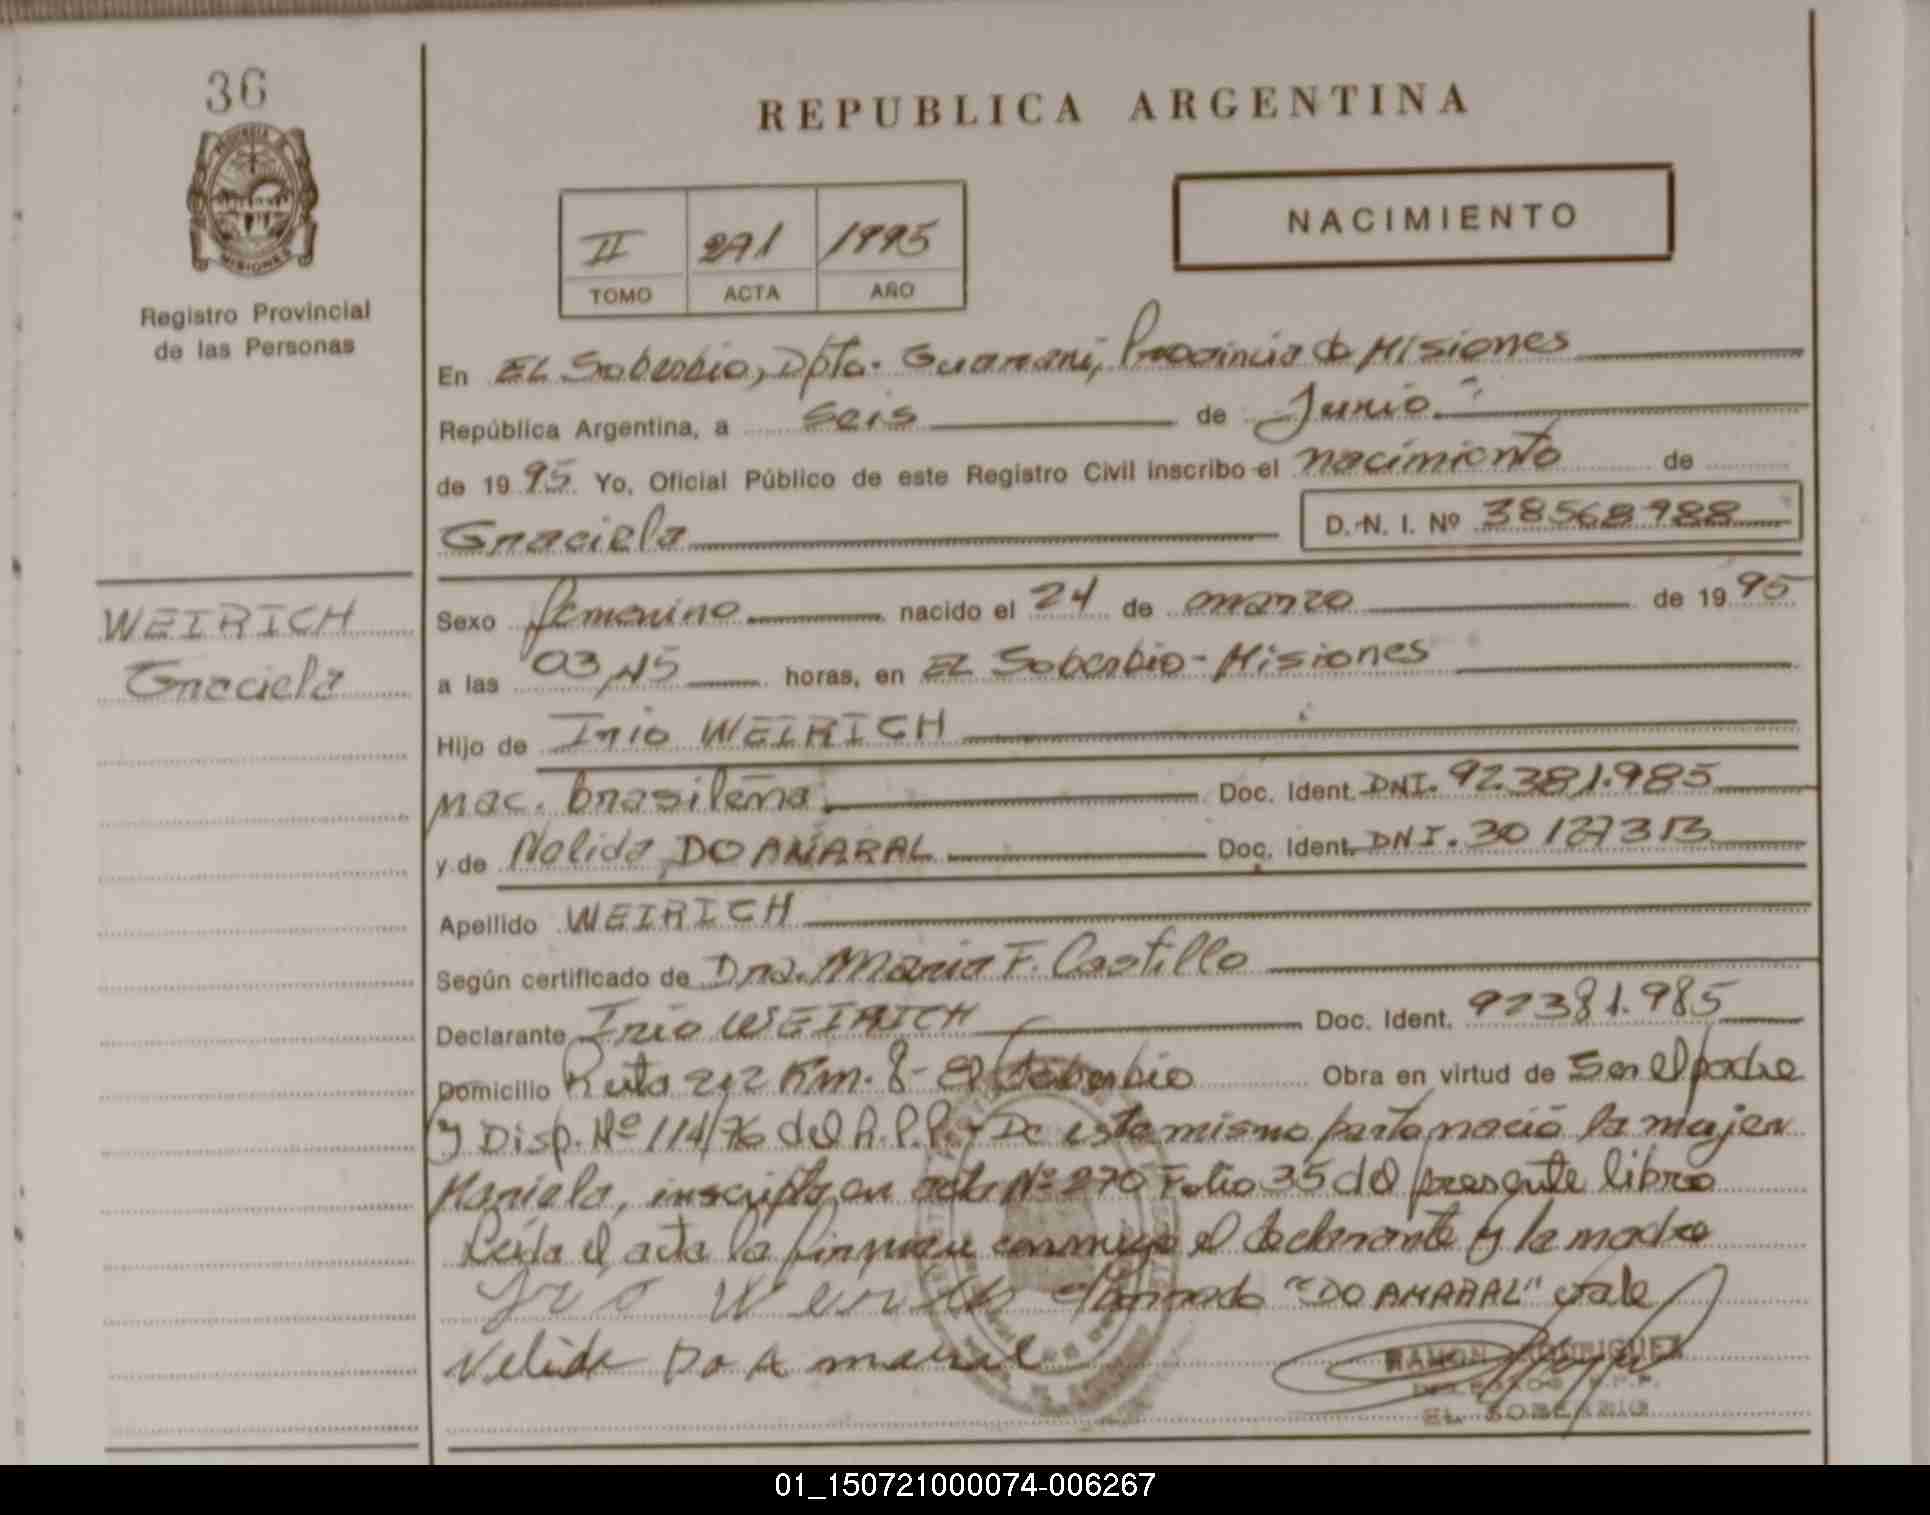 36
MISIONES
Registro Provincial
de las Personas
REPUBLICA ARGENTINA
II 271 1995
TOMO ACTA AÑO
NACIMIENTO
En EL Soberbio, Dpto. Guarani, Provincia de Misiones
República Argentina, a seis de Junio
de 1995. Yo, Oficial Público de este Registro Civil inscribo el nacimiento de
Graciela D.N.I. Nº 38568988
WEIRICH
Graciela
Sexo femenino nacido el 24 de marzo de 1995
a las 03,15 horas, en EL Soberbio - Misiones
Hijo de Irio WEIRICH
Nac. brasileña Doc. Ident. DNI. 92.381.985
y de Nelida DO AMARAL Doc. Ident. DNI. 30 137 313
Apellido WEIRICH
Según certificado de Dra. Maria F. Castillo
Declarante Irio WEIRICH Doc. Ident. 92381.985
Domicilio Ruta 212 Km. 8 - El Soberbio Obra en virtud de Ser el padre
y Disp. Nº 114/76 del R.P.P. De este mismo parto nació la mujer
Mariela, inscripta en acta Nº 270 Folio 35 del presente libro
Leida el acta la firman conmigo el declarante y la madre
Irio Weirich "DO AMARAL" vale
Nelida Do Amaral
RAMON RODRIGUEZ
DELEGADO R.P.P.
EL SOBERBIO
01_150721000074-006267